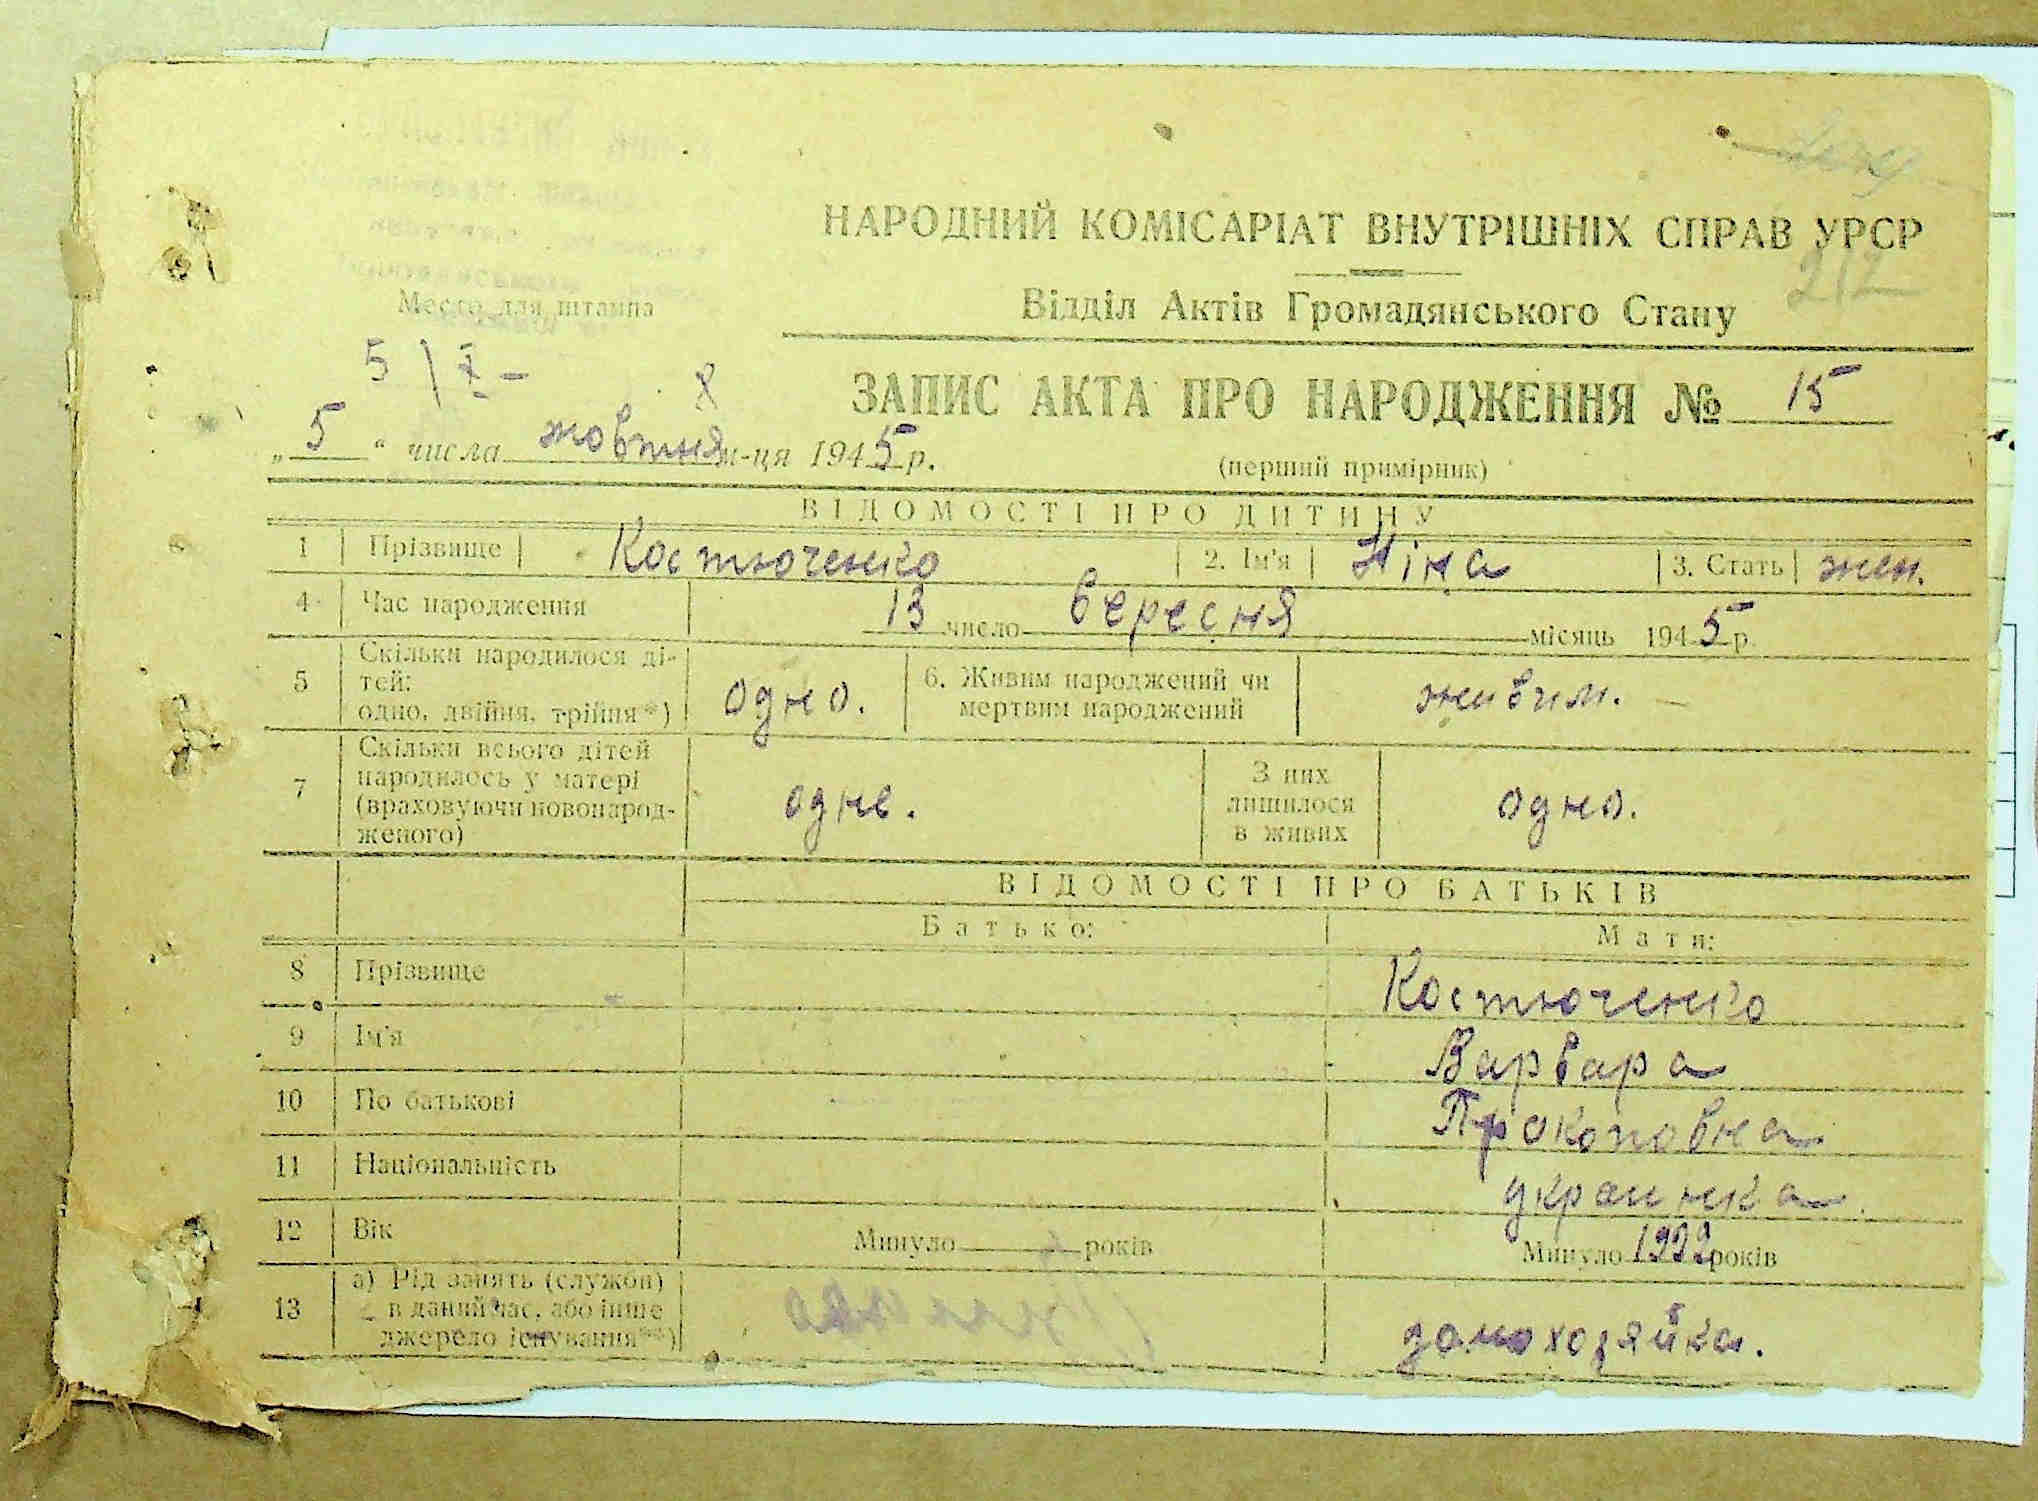 НАРОДНИЙ КОМІСАРІАТ ВНУТРІШНІХ СПРАВ УРСР
212
Відділ Актів Громадянського Стану
Место для штампа
5 / X -
ЗАПИС АКТА ПРО НАРОДЖЕННЯ № 15
„5“ числа жовтня м-ця 1945 р.
(перший примірник)
ВІДОМОСТІ ПРО ДИТИНУ
1 Прізвище Костюченко 2. Ім'я Ніна 3. Стать жен.
4 Час народження 13 число вересня місяць 1945 р.
5 Скільки народилося ді-
тей:
одно, двійня, трійня*) одно. 6. Живим народжений чи
мертвим народжений живим.
7 Скільки всього дітей
народилось у матері
(враховуючи новонарод-
женого) одне. З них
лишилося
в живих одно.
ВІДОМОСТІ ПРО БАТЬКІВ
Батько: Мати:
8 Прізвище Костюченко
9 Ім'я Варвара
10 По батькові Прокоповна
11 Національність украинка
12 Вік Минуло років Минуло років
13 а) Рід занять (служби)
в даний час, або інше
джерело існування**) домохозяйка.